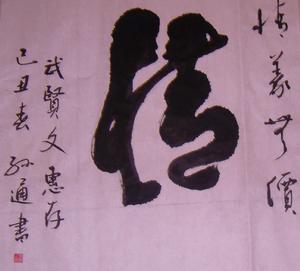 情義無價
情
武賢文惠存
己丑春
孙通書